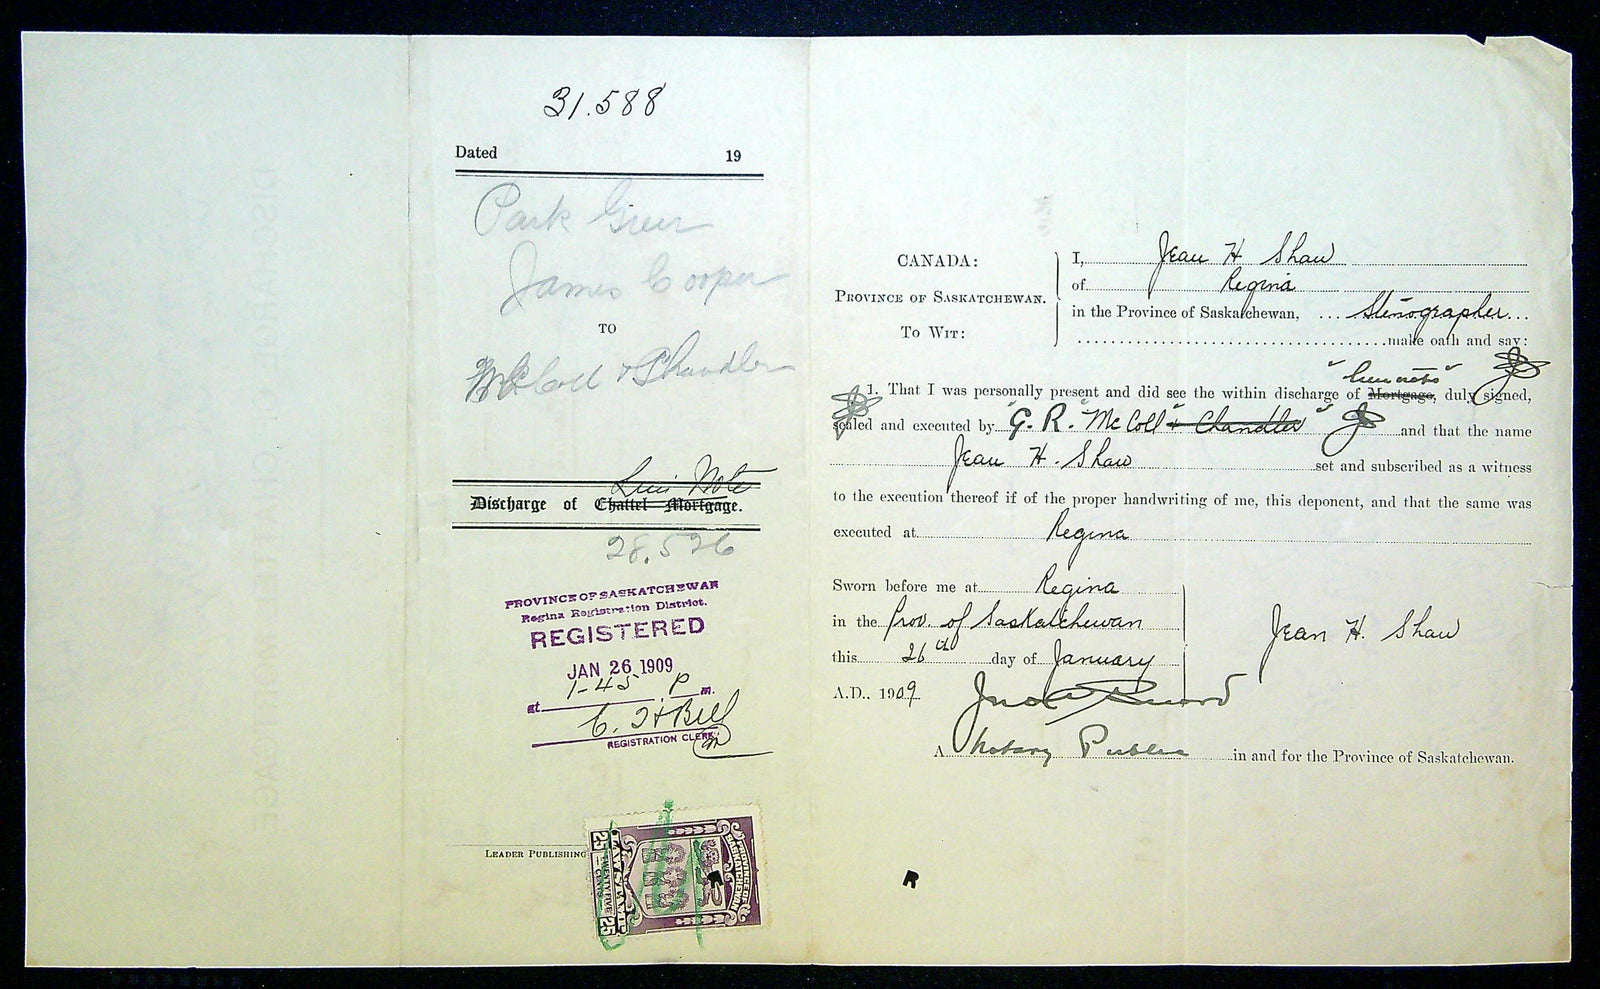 31.588
Dated 19
Park Greer
James Cooper
TO
McColl & Chandler
Lien Note
Discharge of Chattel Mortgage.
28.526
PROVINCE OF SASKATCHEWAN
Regina Registration District.
REGISTERED
JAN 26 1909
at 1-45 P m.
REGISTRATION CLERK
LEADER PUBLISHING
PROVINCE OF SASKATCHEWAN
LAW STAMP
25 TWENTY FIVE CENTS 25
CANADA:
PROVINCE OF SASKATCHEWAN.
TO WIT:
I, Jean H Shaw
of Regina
in the Province of Saskatchewan, Stenographer
make oath and say:
" lien note "
1. That I was personally present and did see the within discharge of Mortgage, duly signed,
sealed and executed by "G. R." McColl "& Chandler" and that the name
Jean H. Shaw set and subscribed as a witness
to the execution thereof if of the proper handwriting of me, this deponent, and that the same was
executed at Regina
Sworn before me at Regina
in the Prov. of Saskatchewan
this 26th day of January
A.D., 1909
Jean H. Shaw
A Notary Public in and for the Province of Saskatchewan.